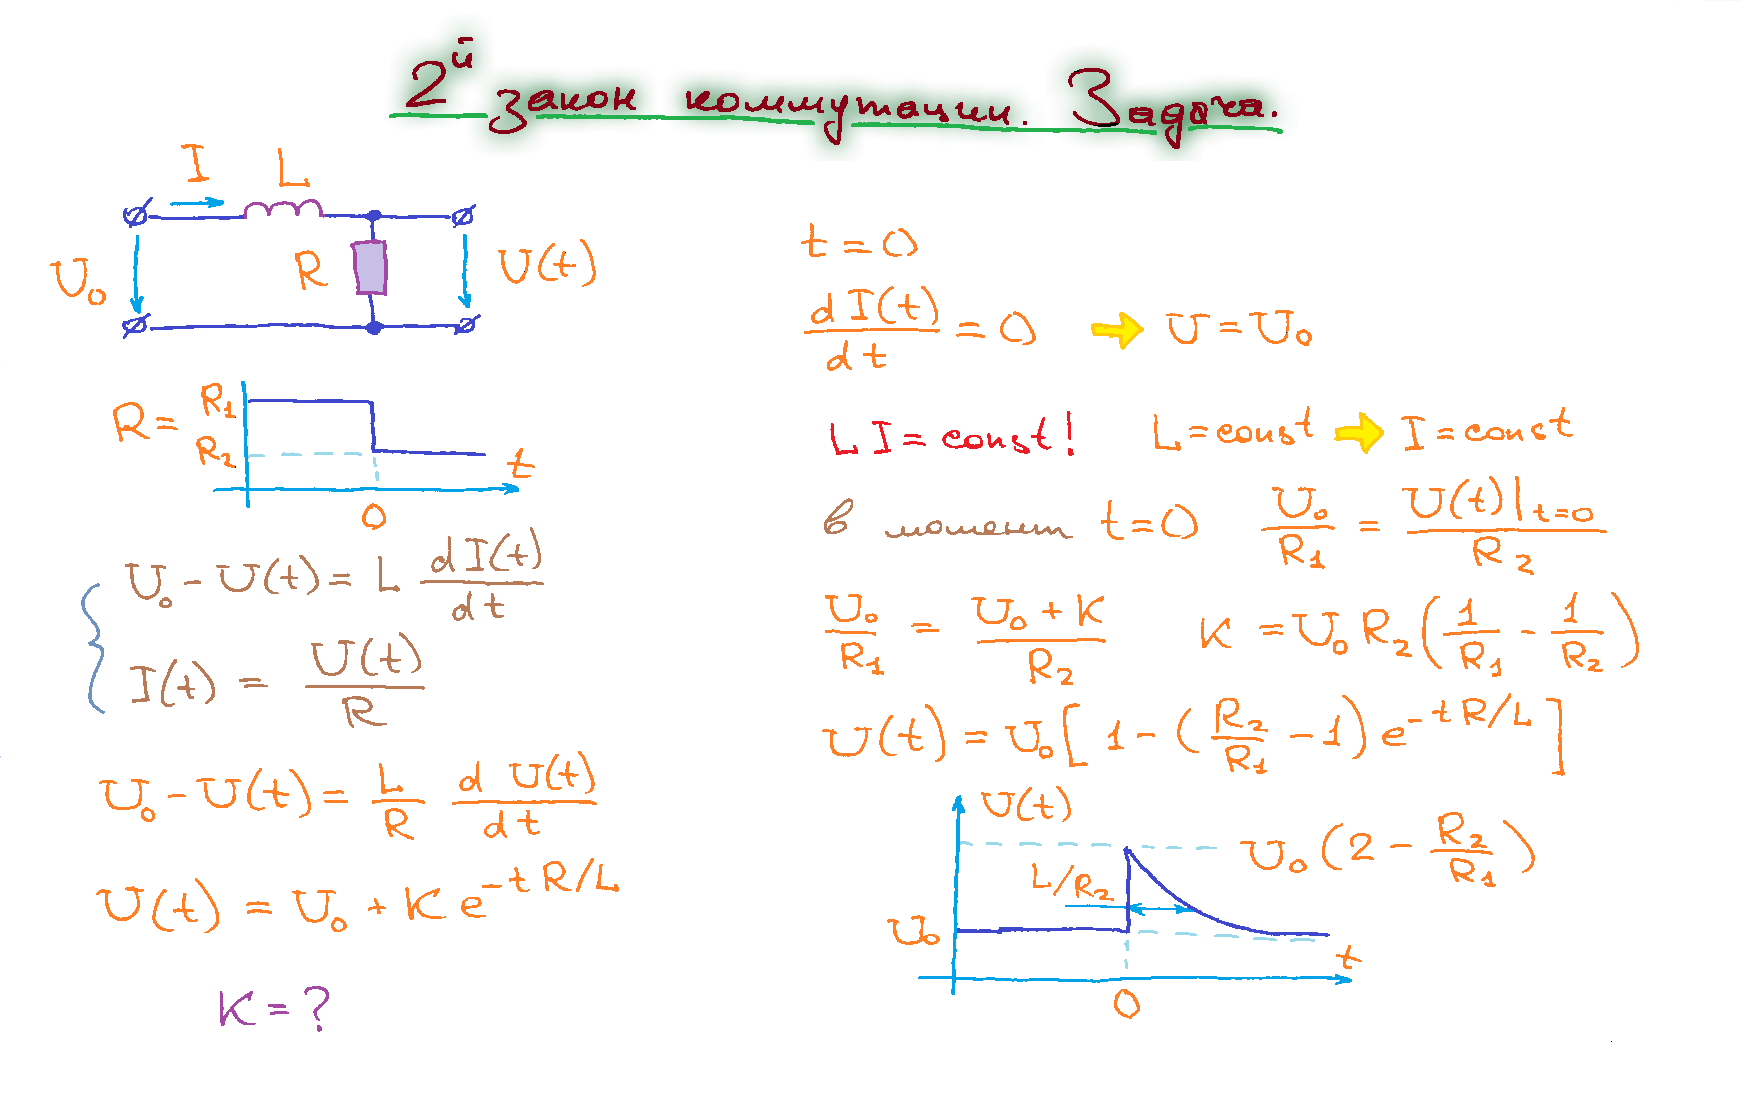 2й закон коммутации. Задача.
I L
U₀ R U(t)
R = R₁
R₂ t
0
U₀ - U(t) = L dI(t)/dt
I(t) = U(t)/R
U₀ - U(t) = L/R dU(t)/dt
U(t) = U₀ + K e^(-tR/L)
K = ?
t = 0
dI(t)/dt = 0 ➡ U = U₀
LI = const! L = const ➡ I = const
в момент t = 0 U₀/R₁ = U(t)|t=0/R₂
U₀/R₁ = (U₀ + K)/R₂ K = U₀ R₂ (1/R₁ - 1/R₂)
U(t) = U₀ [1 - (R₂/R₁ - 1) e^(-tR/L)]
U(t)
U₀ (2 - R₂/R₁)
L/R₂
U₀
t
0